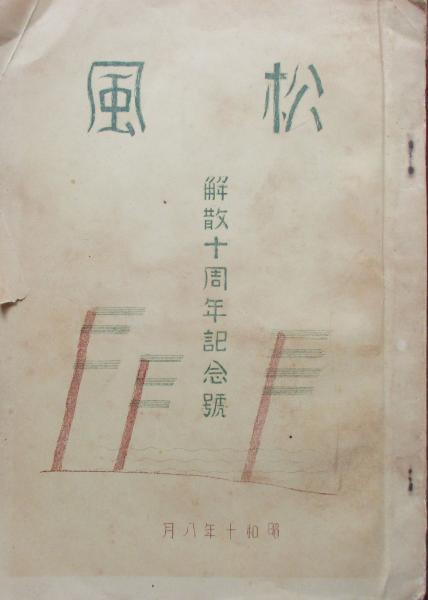 松風
解散十周年記念號
昭和十年八月